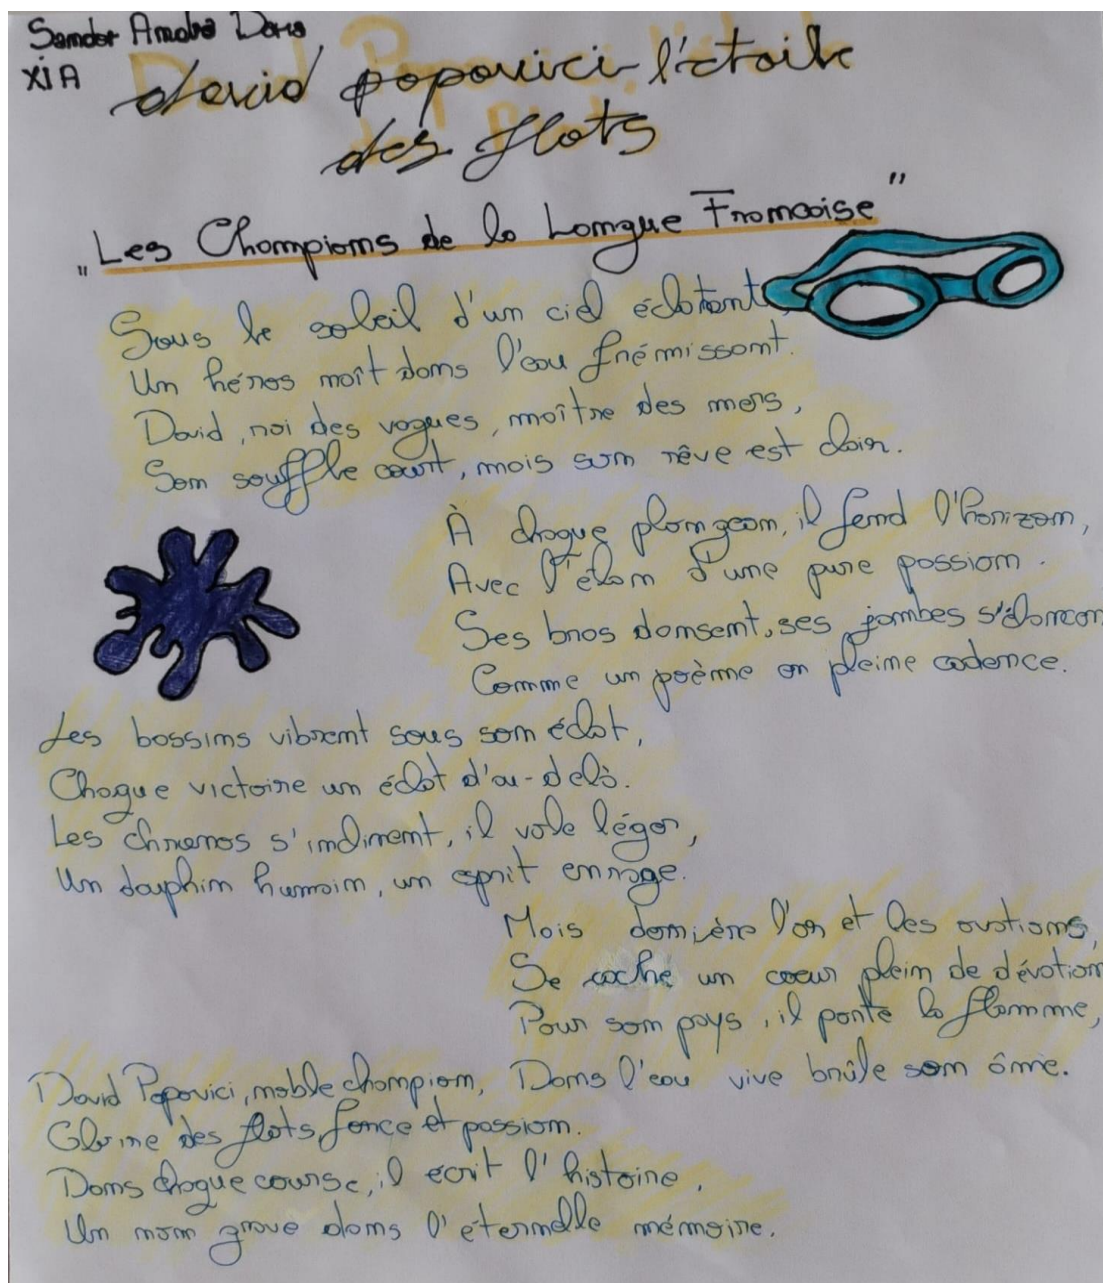 Sandor Amalia Daria
XI A
david popovici l'étoile
des flots
„Les Champions de la Langue Francaise"
Sous le soleil d'un ciel éclatant,
Un héros naît dans l'eau frémissant.
David, roi des vagues, maître des mers,
Son souffle court, mais son rêve est clair.
À chaque plongeon, il fend l'horizon,
Avec l'élan d'une pure passion.
Ses bras dansent, ses jambes s'élancen
Comme un poème en pleine cadence.
Les bassins vibrent sous son éclat,
Chaque victoire un éclat d'au-delà.
Les chronos s'inclinent, il vole léger,
Un dauphin humain, un esprit enragé.
Mais derrière l'or et les ovations,
Se cache un coeur plein de dévotion
Pour son pays, il porte la flamme,
Dans l'eau vive brûle son âme.
David Popovici, noble champion,
Gloire des flots, force et passion.
Dans chaque course, il écrit l'histoire,
Un nom grave dans l'éternelle mémoire.